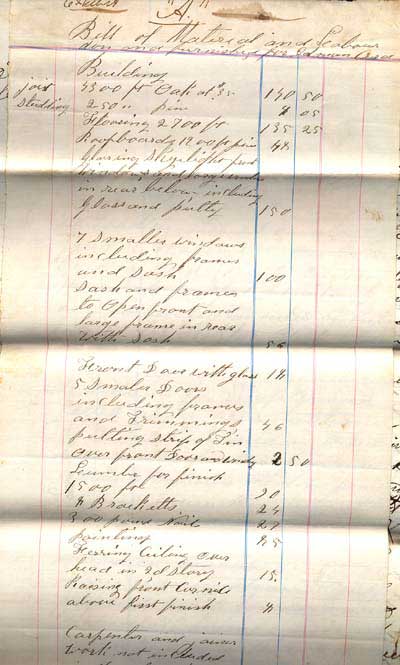 Exhibit "A"
Bill of Material and Labour
don and furnished for
Building
joist 4300 ft Oak at 35 150 50
studding 250 " pine 8 05
Flooring 2700 ft 135 25
Roofboards 1200 ft pine 48
glasing Skylight front
windows and
in rear below including
glass and putty 150
7 Smaller windows
including frames
and Sash 100
Sash and frames
to Open front and
large frame in rear
with Sash 56
Front Door with glass 18
5 Smaler Doors
including frames
and Trimmings 46
putting strip of Tin
over front Door and 2 50
Lumbe for finish
1500 for 20
8 Bracketts 24
300 pound Nail 27
painting 85
Ferring Ceiling Over
head in 2d Story 15
Raising front Cornice
above first finish 8
Carpenter and joiner
Work not included